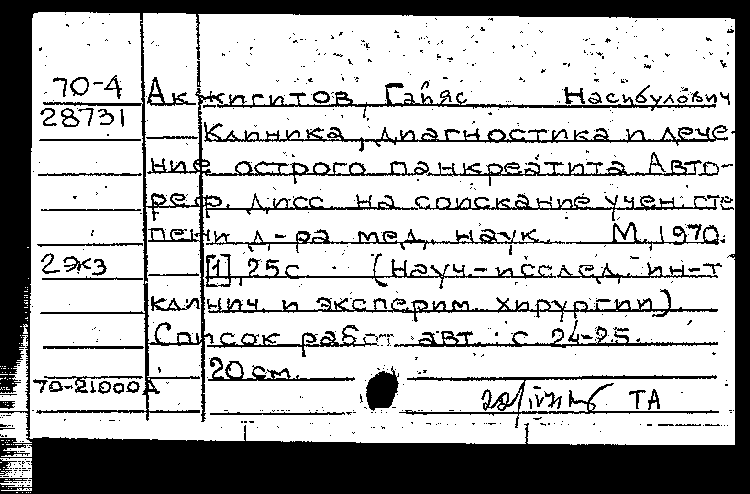 70-4 Акжигитов, Гайяс Насибулович
28731 Клиника, диагностика и лече-
ние острого панкреатита Авто-
реф. дисс. на соискание учен. сте
пени д-ра мед. наук. М., 1970.
2экз [1], 25 с. (Науч.-исслед. ин-т
клинич. и эксперим. хирургии).
Список работ авт.: с 24-25.
20 см.
70-21000Д ТА